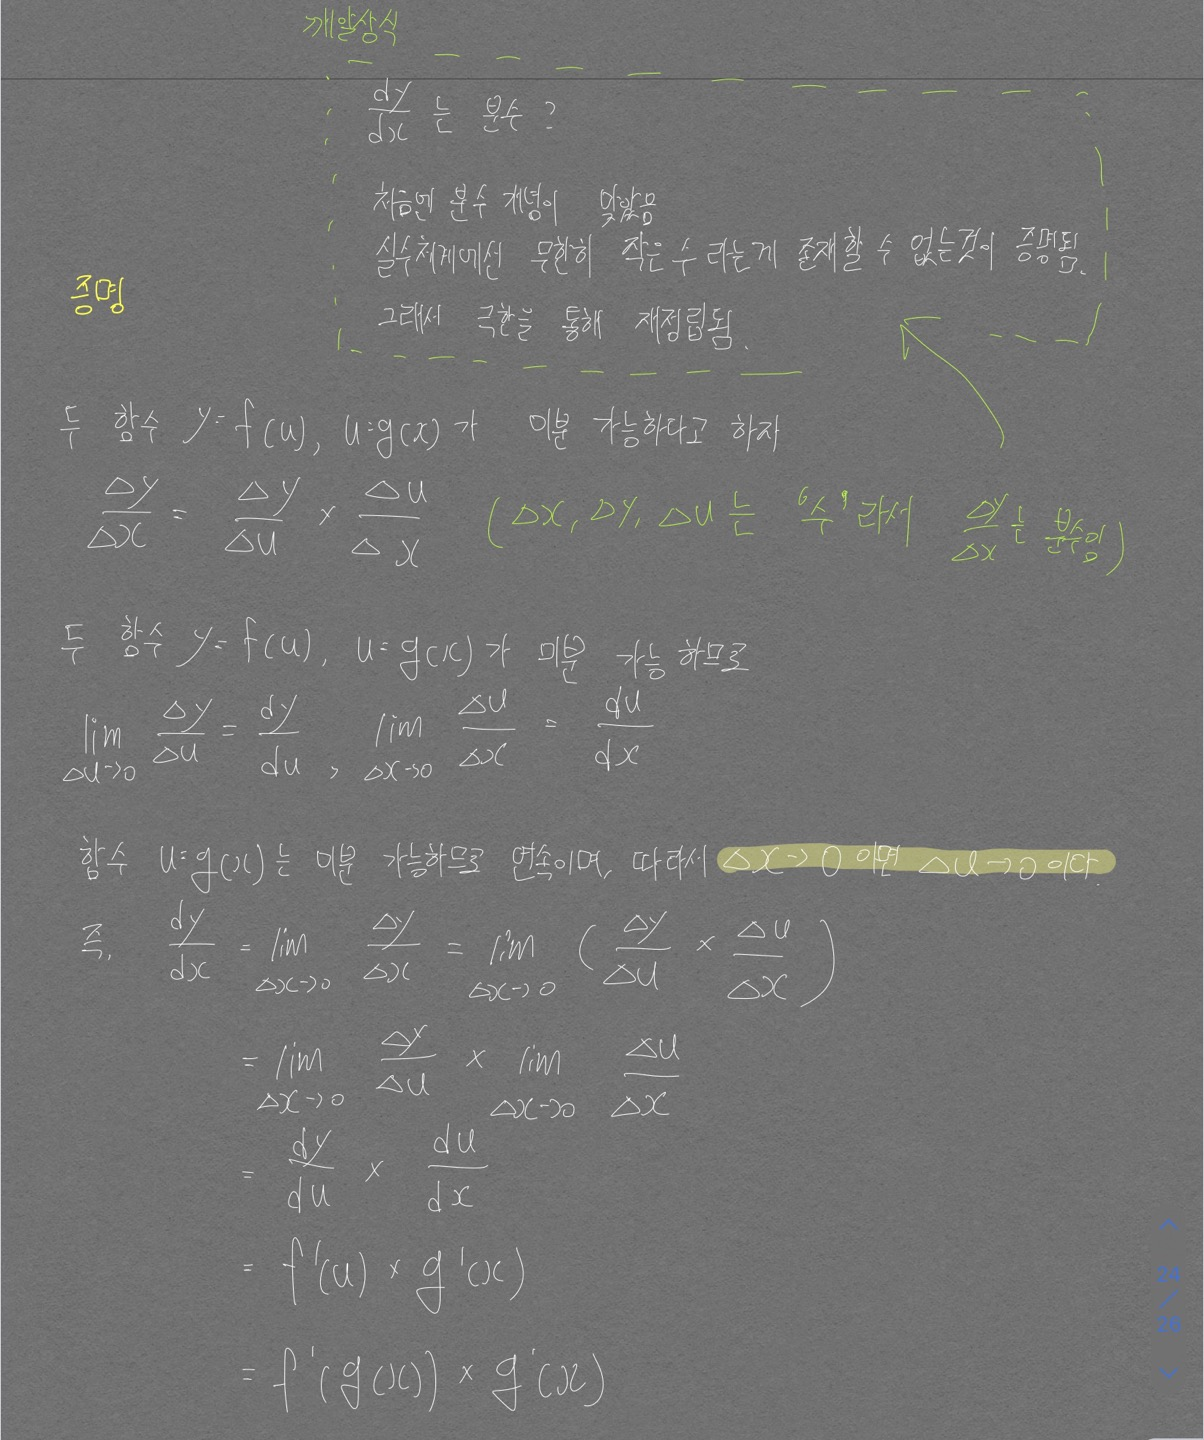 깨알상식
dy/dx 는 분수?
처음엔 분수 개념이 맞았음
실수체계에선 무한히 작은 수 라는게 존재할 수 없는것이 증명됨.
그래서 극한을 통해 재정립됨.
증명
두 함수 y=f(u), u=g(x)가 미분 가능하다고 하자
Δy/Δx = Δy/Δu × Δu/Δx (Δx, Δy, Δu는 '수'라서 Δy/Δx는 분수임)
두 함수 y=f(u), u=g(x)가 미분 가능 하므로
lim Δu→0 Δy/Δu = dy/du, lim Δx→0 Δu/Δx = du/dx
함수 u=g(x)는 미분 가능하므로 연속이며, 따라서 Δx→0 이면 Δu→0 이다.
즉, dy/dx = lim Δx→0 Δy/Δx = lim Δx→0 (Δy/Δu × Δu/Δx)
= lim Δx→0 Δy/Δu × lim Δx→0 Δu/Δx
= dy/du × du/dx
= f'(u) × g'(x)
= f'(g(x)) × g'(x)
24
/
26